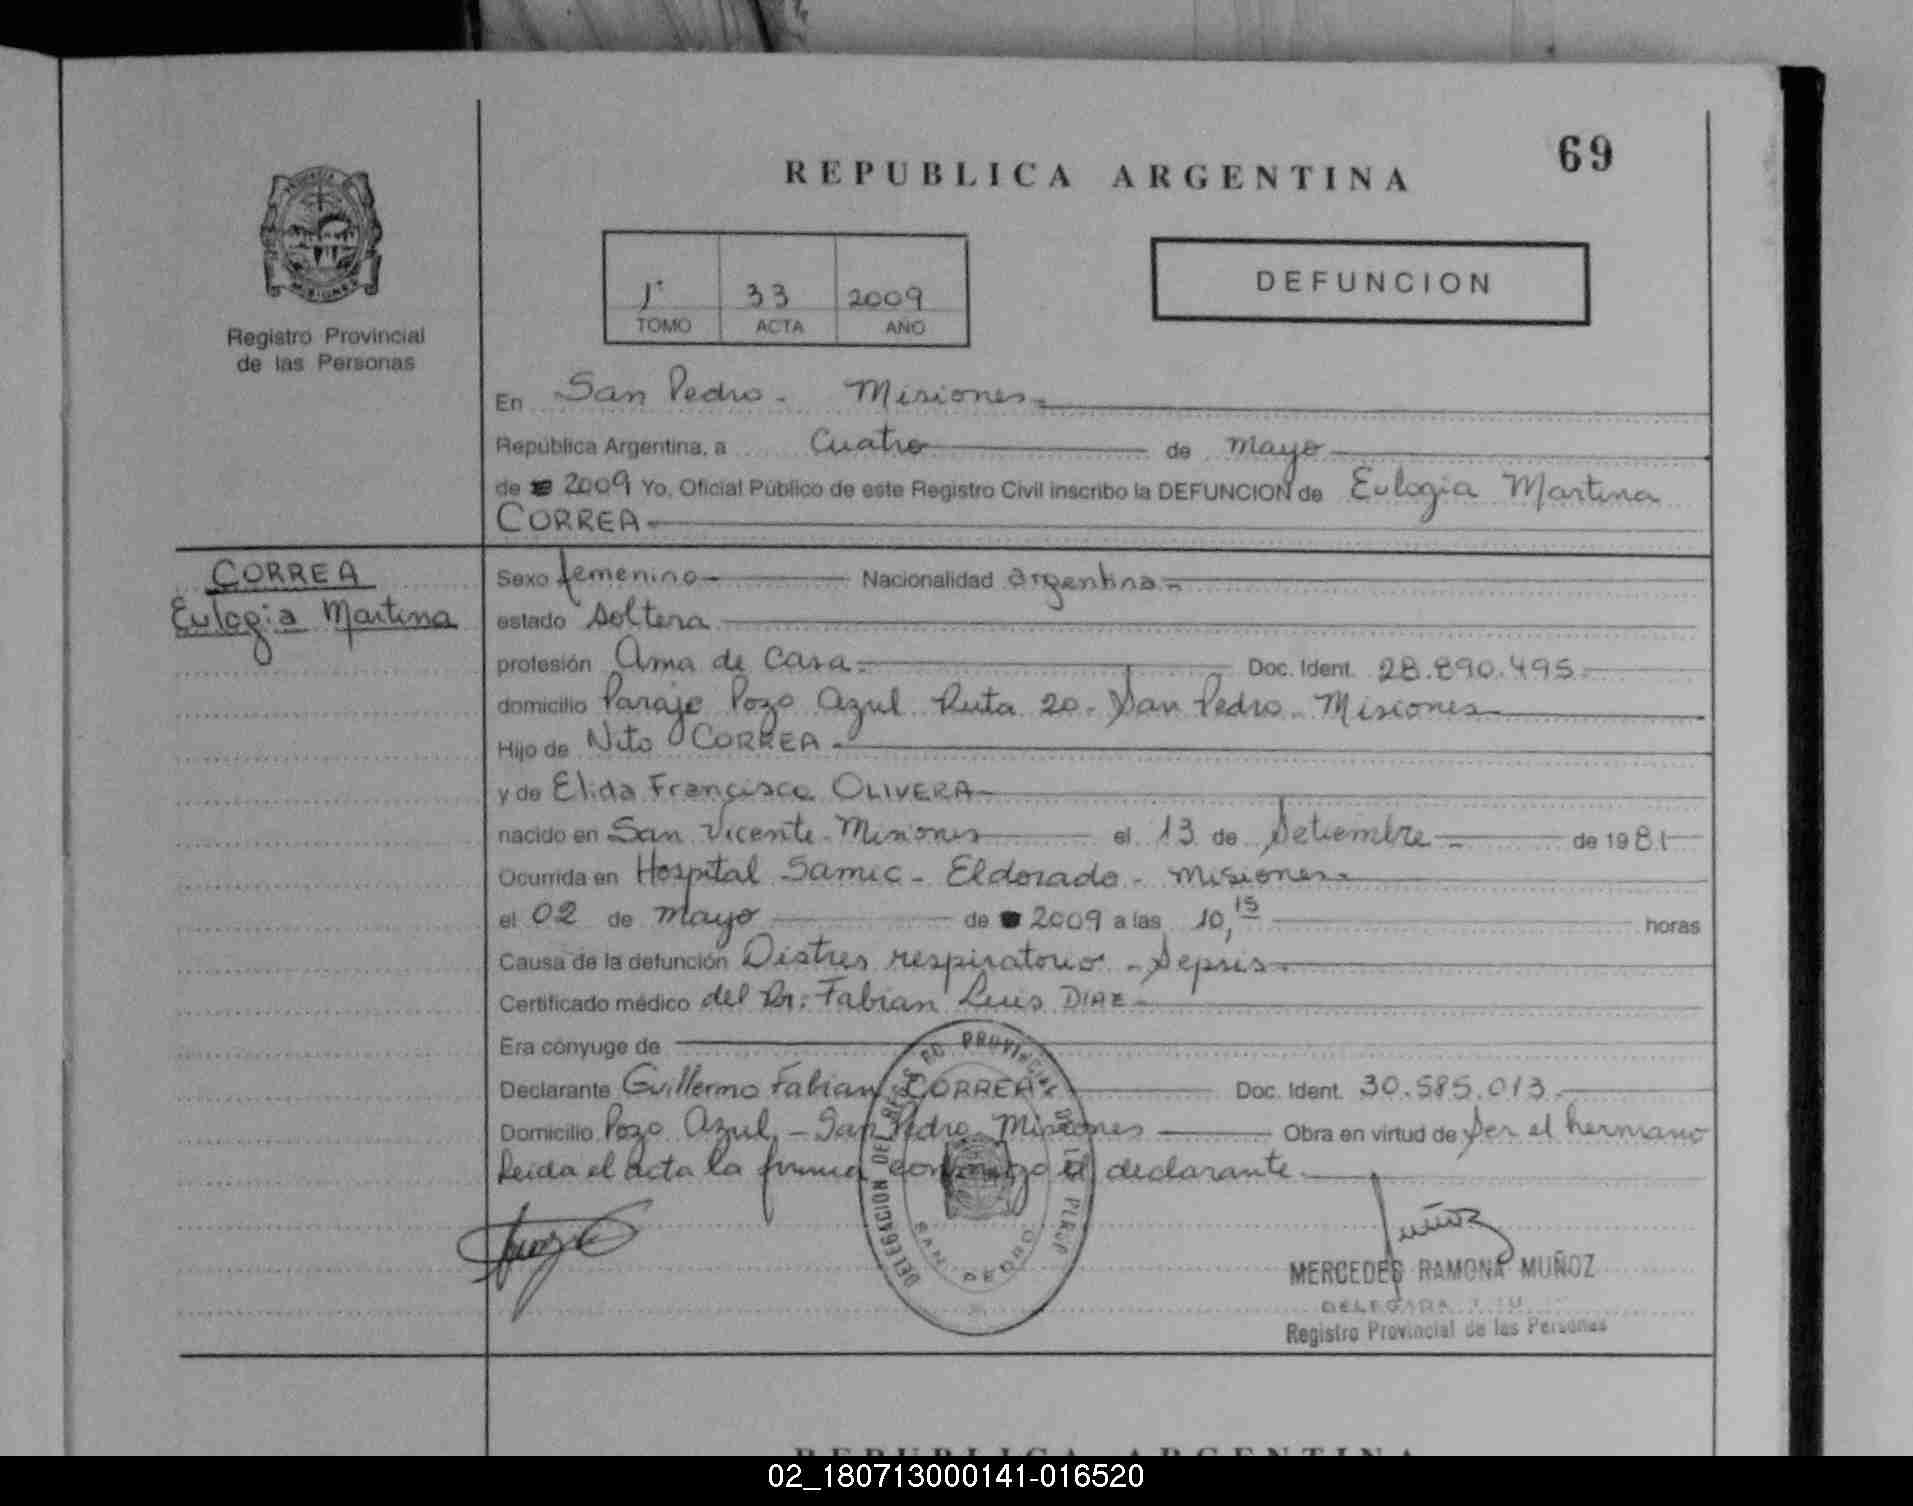 69
REPUBLICA ARGENTINA
MISIONES
Registro Provincial
de las Personas
1° 33 2009
TOMO ACTA AÑO
DEFUNCION
En San Pedro - Misiones
República Argentina, a Cuatro de Mayo
de 2009 Yo, Oficial Público de este Registro Civil inscribo la DEFUNCION de Eulogia Martina
CORREA
CORREA
Eulogia Martina
Sexo femenino Nacionalidad argentina
estado Soltera
profesión Ama de Casa Doc. Ident. 28.890.495
domicilio Paraje Pozo Azul Ruta 20 - San Pedro - Misiones
Hijo de Nito CORREA
y de Elida Francisca OLIVERA
nacido en San Vicente - Misiones el 13 de Setiembre de 1981
Ocurrida en Hospital Samic - Eldorado - Misiones
el 02 de Mayo de 2009 a las 10,15 horas
Causa de la defunción Distres respiratorio - Sepsis
Certificado médico del Dr: Fabian Luis DIAZ
Era cónyuge de
Declarante Guillermo Fabian CORREA Doc. Ident. 30.585.013
Domicilio Pozo Azul - San Pedro Misiones Obra en virtud de Ser el hermano
Leida el acta la firma conmigo el declarante
DELEGACION DEL REGISTRO PROVINCIAL DE LAS PERSO
SAN PEDRO
Muñoz
MERCEDES RAMONA MUÑOZ
DELEGADA
Registro Provincial de las Personas
REPUBLICA ARGENTINA
02_180713000141-016520